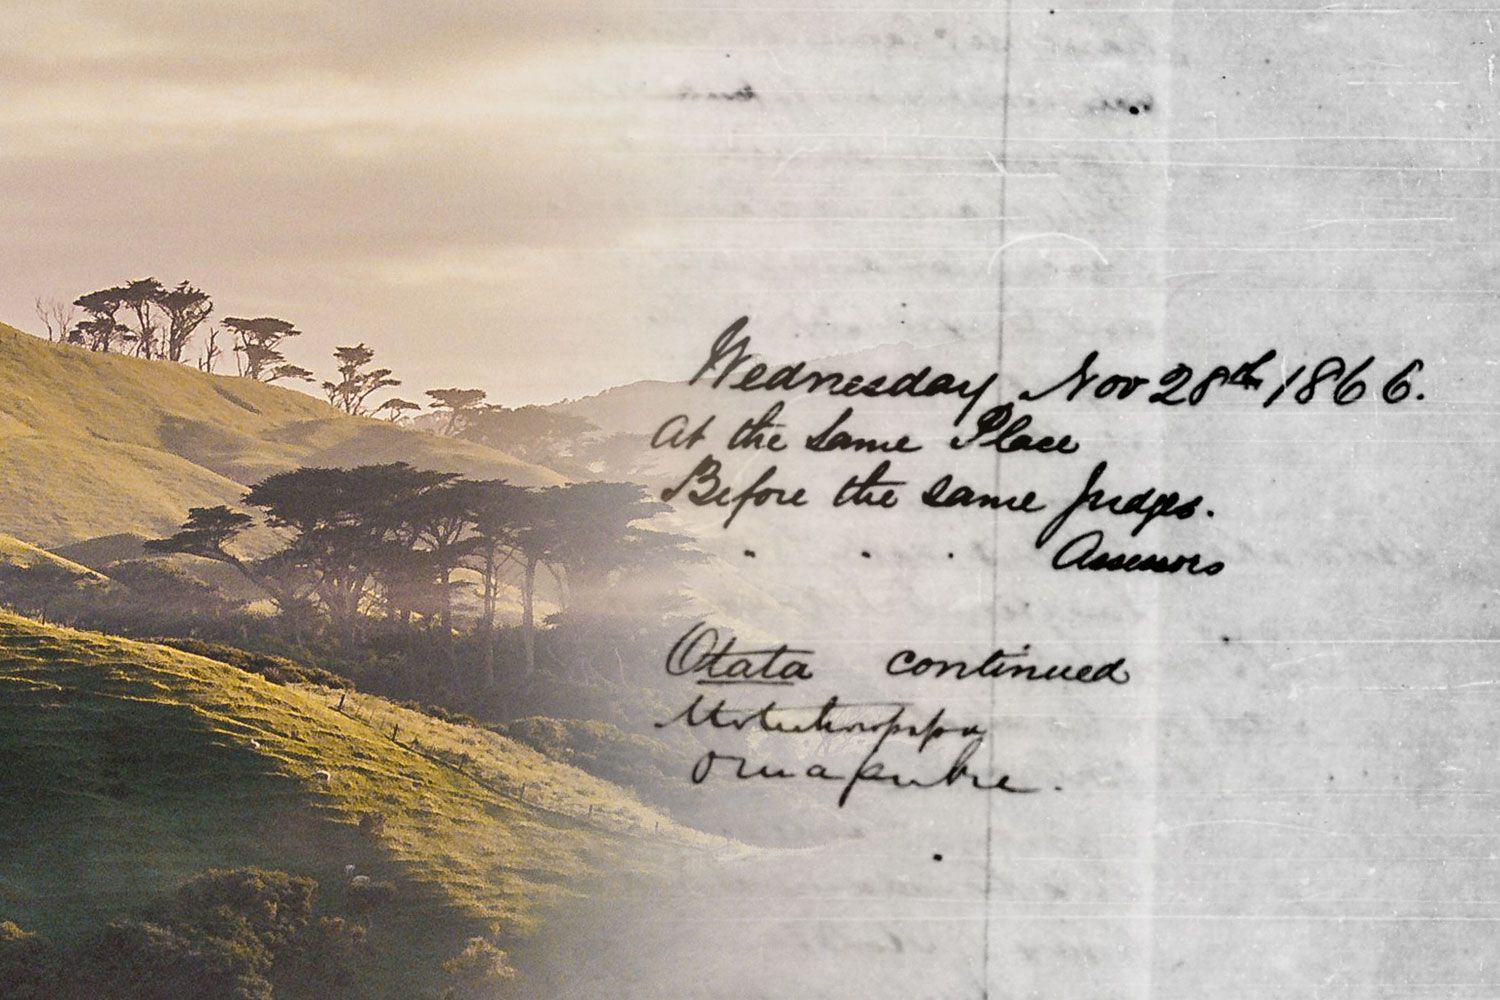 Wednesday Nov 28th 1866.
At the same Place
Before the same Judges.
" " " Assessors
Otata continued